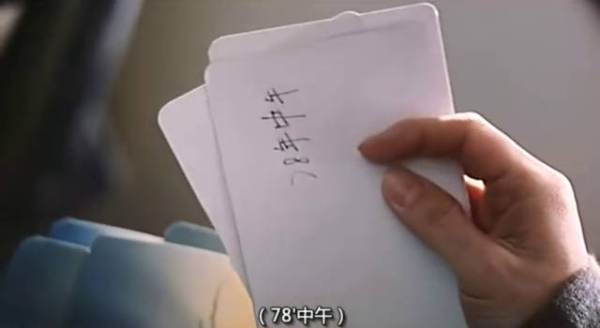 78年中午
(78'中午)